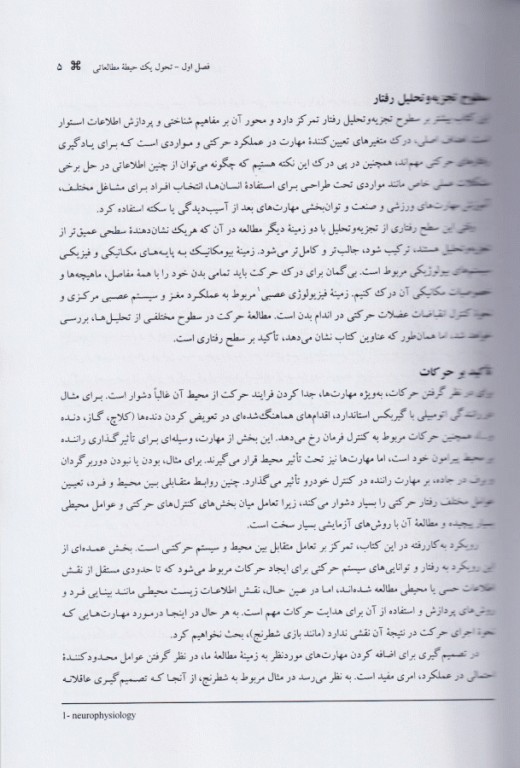 فصل اول – تحول یک حیطهٔ مطالعاتی ⌘ ۵
سطوح تجزیه‌وتحلیل رفتار
این کتاب بیشتر بر سطوح تجزیه‌وتحلیل رفتار تمرکز دارد و محور آن بر مفاهیم شناختی و پردازش اطلاعات استوار
است. هدف اصلی، درک متغیرهای تعیین‌کنندهٔ مهارت در عملکرد حرکتی و مواردی است که برای یادگیری
رفتارهای حرکتی مهم‌اند، همچنین در پی درک این نکته هستیم که چگونه می‌توان از چنین اطلاعاتی در حل برخی
مشکلات عملی خاص مانند مواردی تحت طراحی برای استفادهٔ انسان‌ها، انتخاب افراد برای مشاغل مختلف،
آموزش مهارت‌های ورزشی و صنعت و توان‌بخشی مهارت‌های بعد از آسیب‌دیدگی یا سکته استفاده کرد.
وقتی این سطح رفتاری از تجزیه‌وتحلیل با دو زمینهٔ دیگر مطالعه در آن که هریک نشان‌دهندهٔ سطحی عمیق‌تر از
تجزیه‌وتحلیل هستند، ترکیب شود، جالب‌تر و کامل‌تر می‌شود. زمینهٔ بیومکانیک به پایه‌های مکانیکی و فیزیکی
سیستم‌های بیولوژیکی مربوط است. بی‌گمان برای درک حرکت باید تمامی بدن خود را با همهٔ مفاصل، ماهیچه‌ها و
خصوصیات مکانیکی آن درک کنیم. زمینهٔ فیزیولوژی عصبی¹ مربوط به عملکرد مغز و سیستم عصبی مرکزی و
نحوهٔ کنترل انقباضات عضلات حرکتی در اندام بدن است. مطالعهٔ حرکت در سطوح مختلفی از تحلیل‌ها، بررسی
خواهند شد، اما همان‌طور که عناوین کتاب نشان می‌دهد، تأکید بر سطح رفتاری است.
تأکید بر حرکات
برای در نظر گرفتن حرکات، به‌ویژه مهارت‌ها، جدا کردن فرایند حرکت از محیط آن غالباً دشوار است. برای مثال
در رانندگی اتومبیلی با گیربکس استاندارد، اقدام‌های هماهنگ‌شده‌ای در تعویض کردن دنده‌ها (کلاچ، گاز، دنده
همچنین حرکات مربوط به کنترل فرمان رخ می‌دهد. این بخش از مهارت، وسیله‌ای برای تأثیرگذاری راننده
بر محیط پیرامون خود است، اما مهارت‌ها نیز تحت تأثیر محیط قرار می‌گیرند. برای مثال، بودن یا نبودن دوربرگردان
در جاده، بر مهارت راننده در کنترل خودرو تأثیر می‌گذارد. چنین روابط متقابلی بین محیط و فرد، تعیین
عوامل مختلف رفتار حرکتی را بسیار دشوار می‌کند، زیرا تعامل میان بخش‌های کنترل‌های حرکتی و عوامل محیطی
بسیار پیچیده و مطالعهٔ آن با روش‌های آزمایشی بسیار سخت است.
رویکرد به‌کاررفته در این کتاب، تمرکز بر تعامل متقابل بین محیط و سیستم حرکتی است. بخش عمده‌ای از
این رویکرد به رفتار و توانایی‌های سیستم حرکتی برای ایجاد حرکات مربوط می‌شود که تا حدودی مستقل از نقش
اطلاعات حسی یا محیطی مطالعه شده‌اند، اما در عین حال، نقش اطلاعات زیست محیطی مانند بینایی فرد و
روش‌های پردازش و استفاده از آن برای هدایت حرکات مهم است. به هر حال در اینجا درمورد مهارت‌هایی که
نحوهٔ اجرای حرکت در نتیجهٔ آن نقشی ندارد (مانند بازی شطرنج)، بحث نخواهیم کرد.
در تصمیم‌گیری برای اضافه کردن مهارت‌های موردنظر به زمینهٔ مطالعهٔ ما، در نظر گرفتن عوامل محدودکنندهٔ
احتمالی در عملکرد، امری مفید است. به نظر می‌رسد در مثال مربوط به شطرنج، از آنجا که تصمیم‌گیری عاقلانه
1- neurophysiology